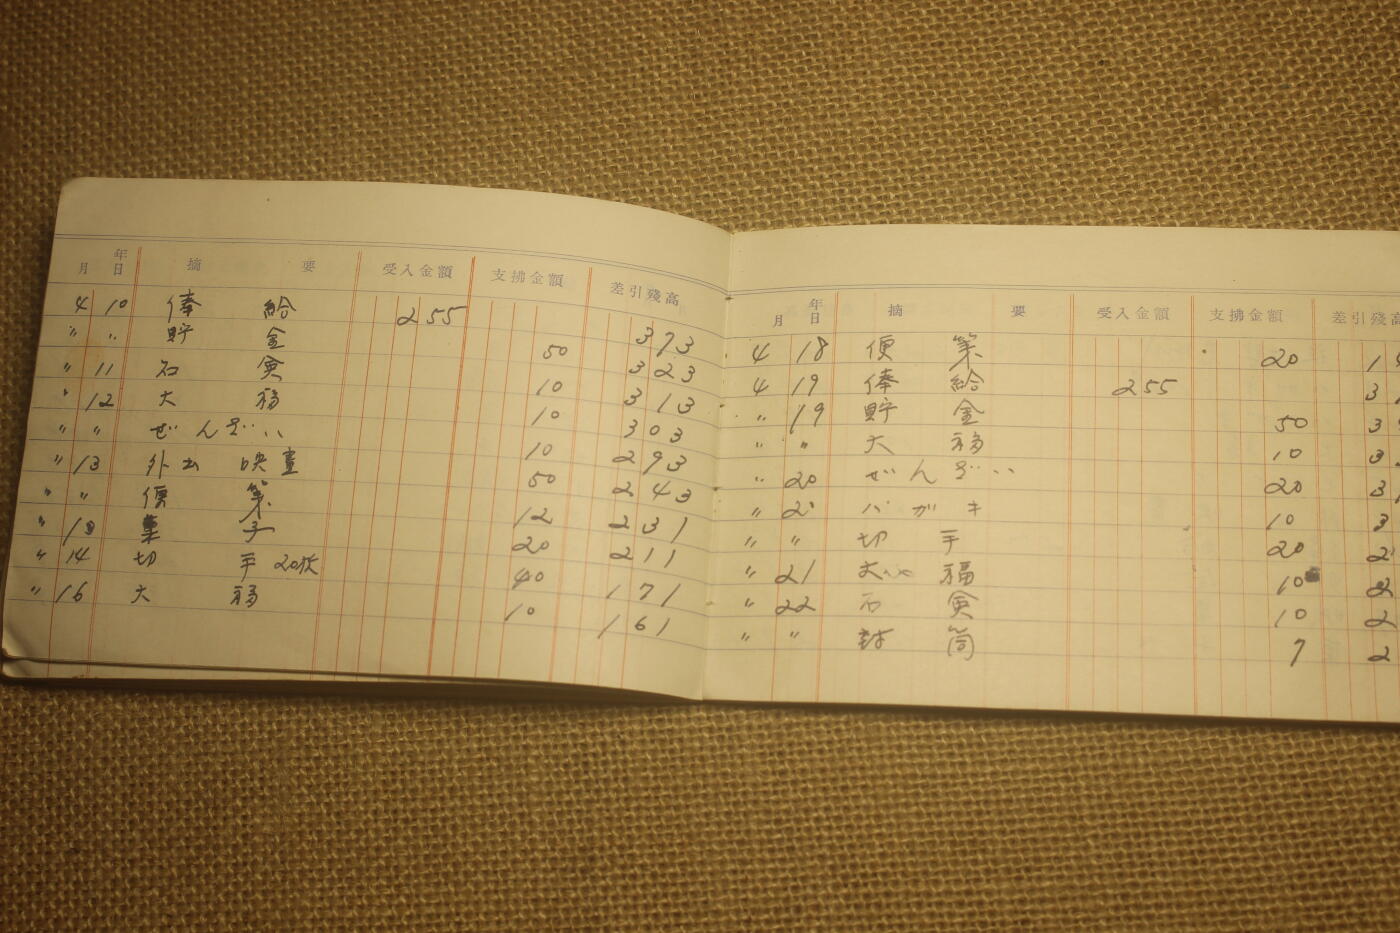 年
月 日 摘 要 受入金額 支拂金額 差引残高
4 10 俸 給 255 373
〃 〃 貯 金 50 323
〃 11 石 鹸 10 313
〃 12 大 福 10 303
〃 〃 ぜんざい 10 293
〃 13 外出 映畫 50 243
〃 〃 便 箋 12 231
〃 13 菓 子 20 211
〃 14 切 手 20枚 40 171
〃 16 大 福 10 161
年
月 日 摘 要 受入金額 支拂金額 差引残高
4 18 便 箋 20 1
4 19 俸 給 255 3
〃 19 貯 金 50 3
〃 〃 大 福 10 3
〃 20 ぜんざい 20 3
〃 ハガキ 10 3
〃 〃 切 手 20 2
〃 21 大 福 10 2
〃 22 石 鹸 10 2
〃 〃 封 筒 7 2